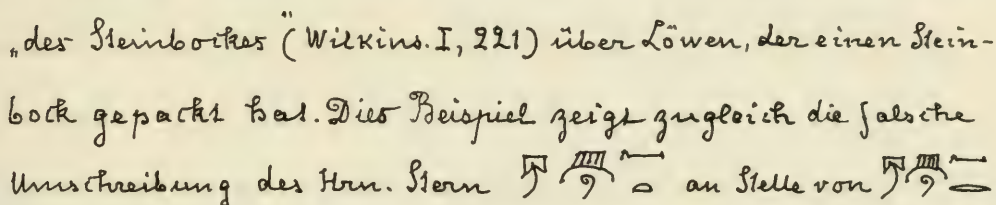 „des Steinbockes“ (Wilkins. I, 221) über Löwen, der einen Stein-
bock gepackt hat. Dies Beispiel zeigt zugleich die falsche
Umschreibung des Hrn. Stern an Stelle von